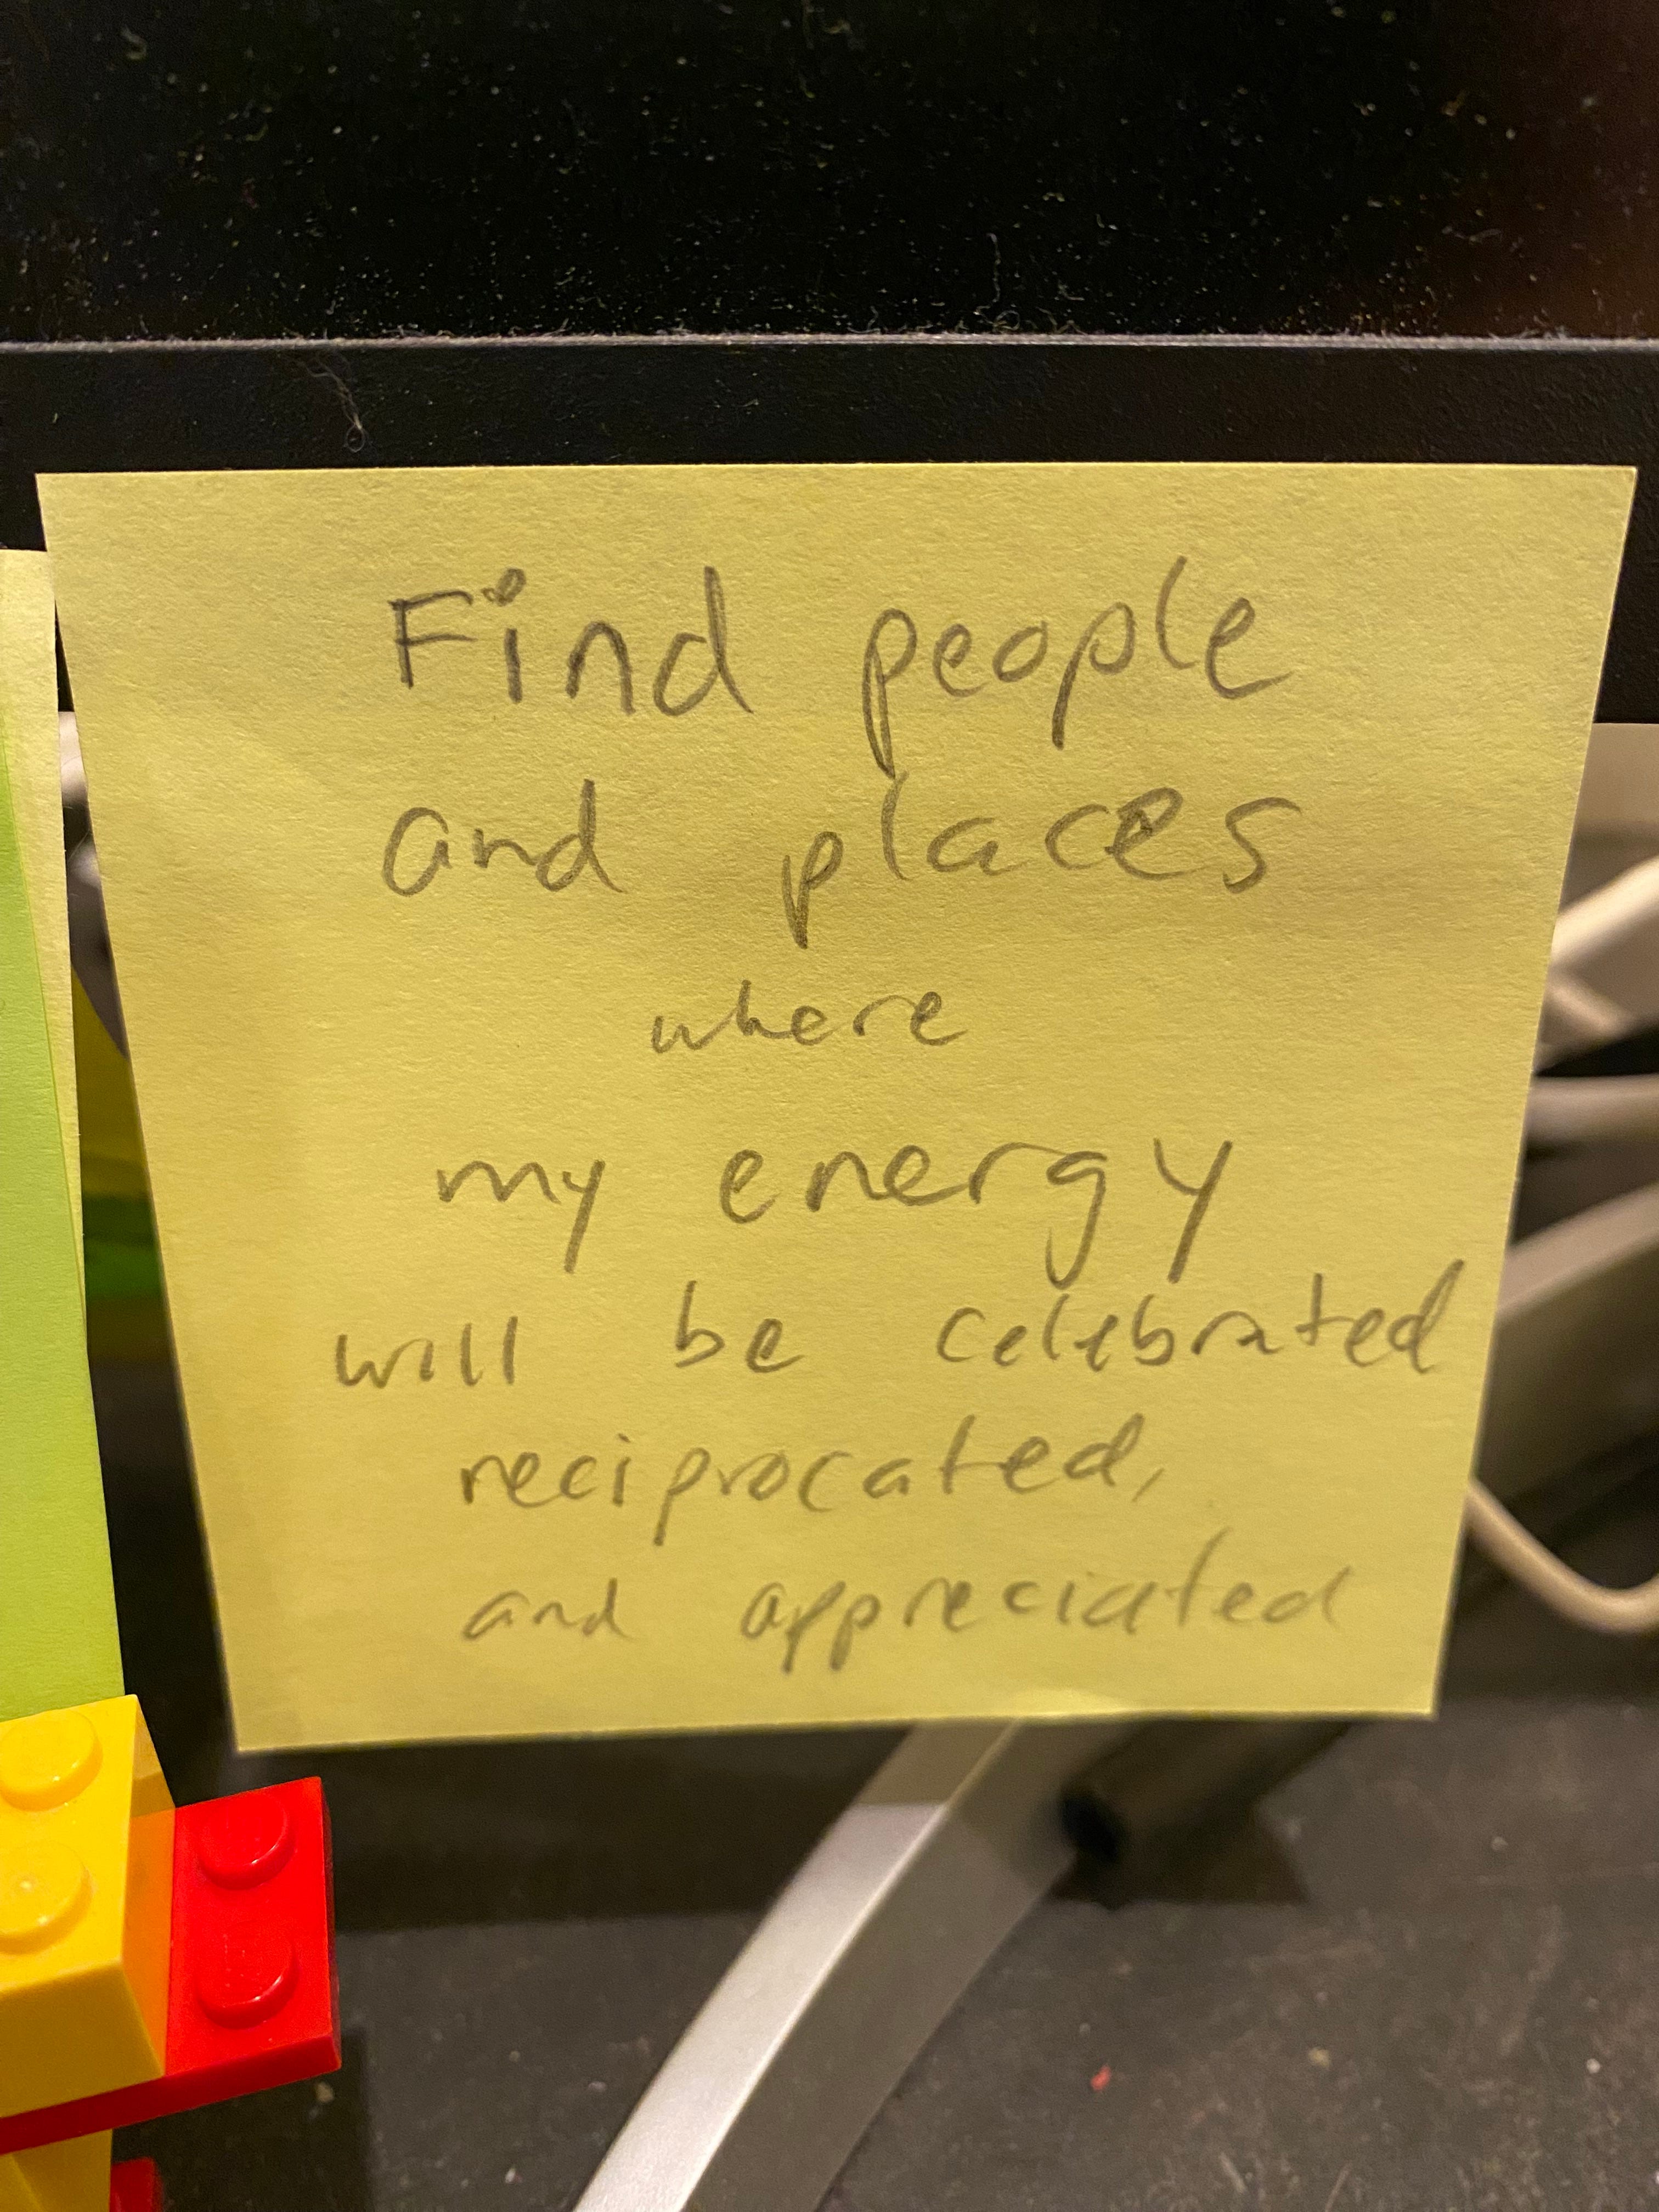 Find people
and places
where
my energy
will be celebrated
reciprocated,
and appreciated